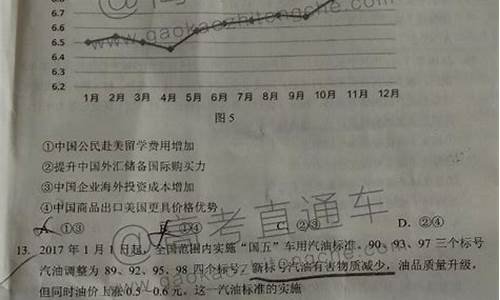 6.8
6.7
6.6
6.5
6.4
6.3
6.2
www.gaokaozhitongche.com
1月 2月 3月 4月 5月 6月 7月 8月 9月 10月 11月 12月
图5
①中国公民赴美留学费用增加
②提升中国外汇储备国际购买力
③中国企业海外投资成本增加
④中国商品出口美国更具价格优势
@高考直通车
A. ①③ B. ①④ C. ②③ D. ②④
13. 2017年1月1日起，全国范围内实施“国五”车用汽油标准。90、93、97三个标号
汽油调整为89、92、95、98四个标号，新标号汽油有害物质减少，油品质量升级，
但同时油价上涨0.5—0.6元。这一汽油标准的实施